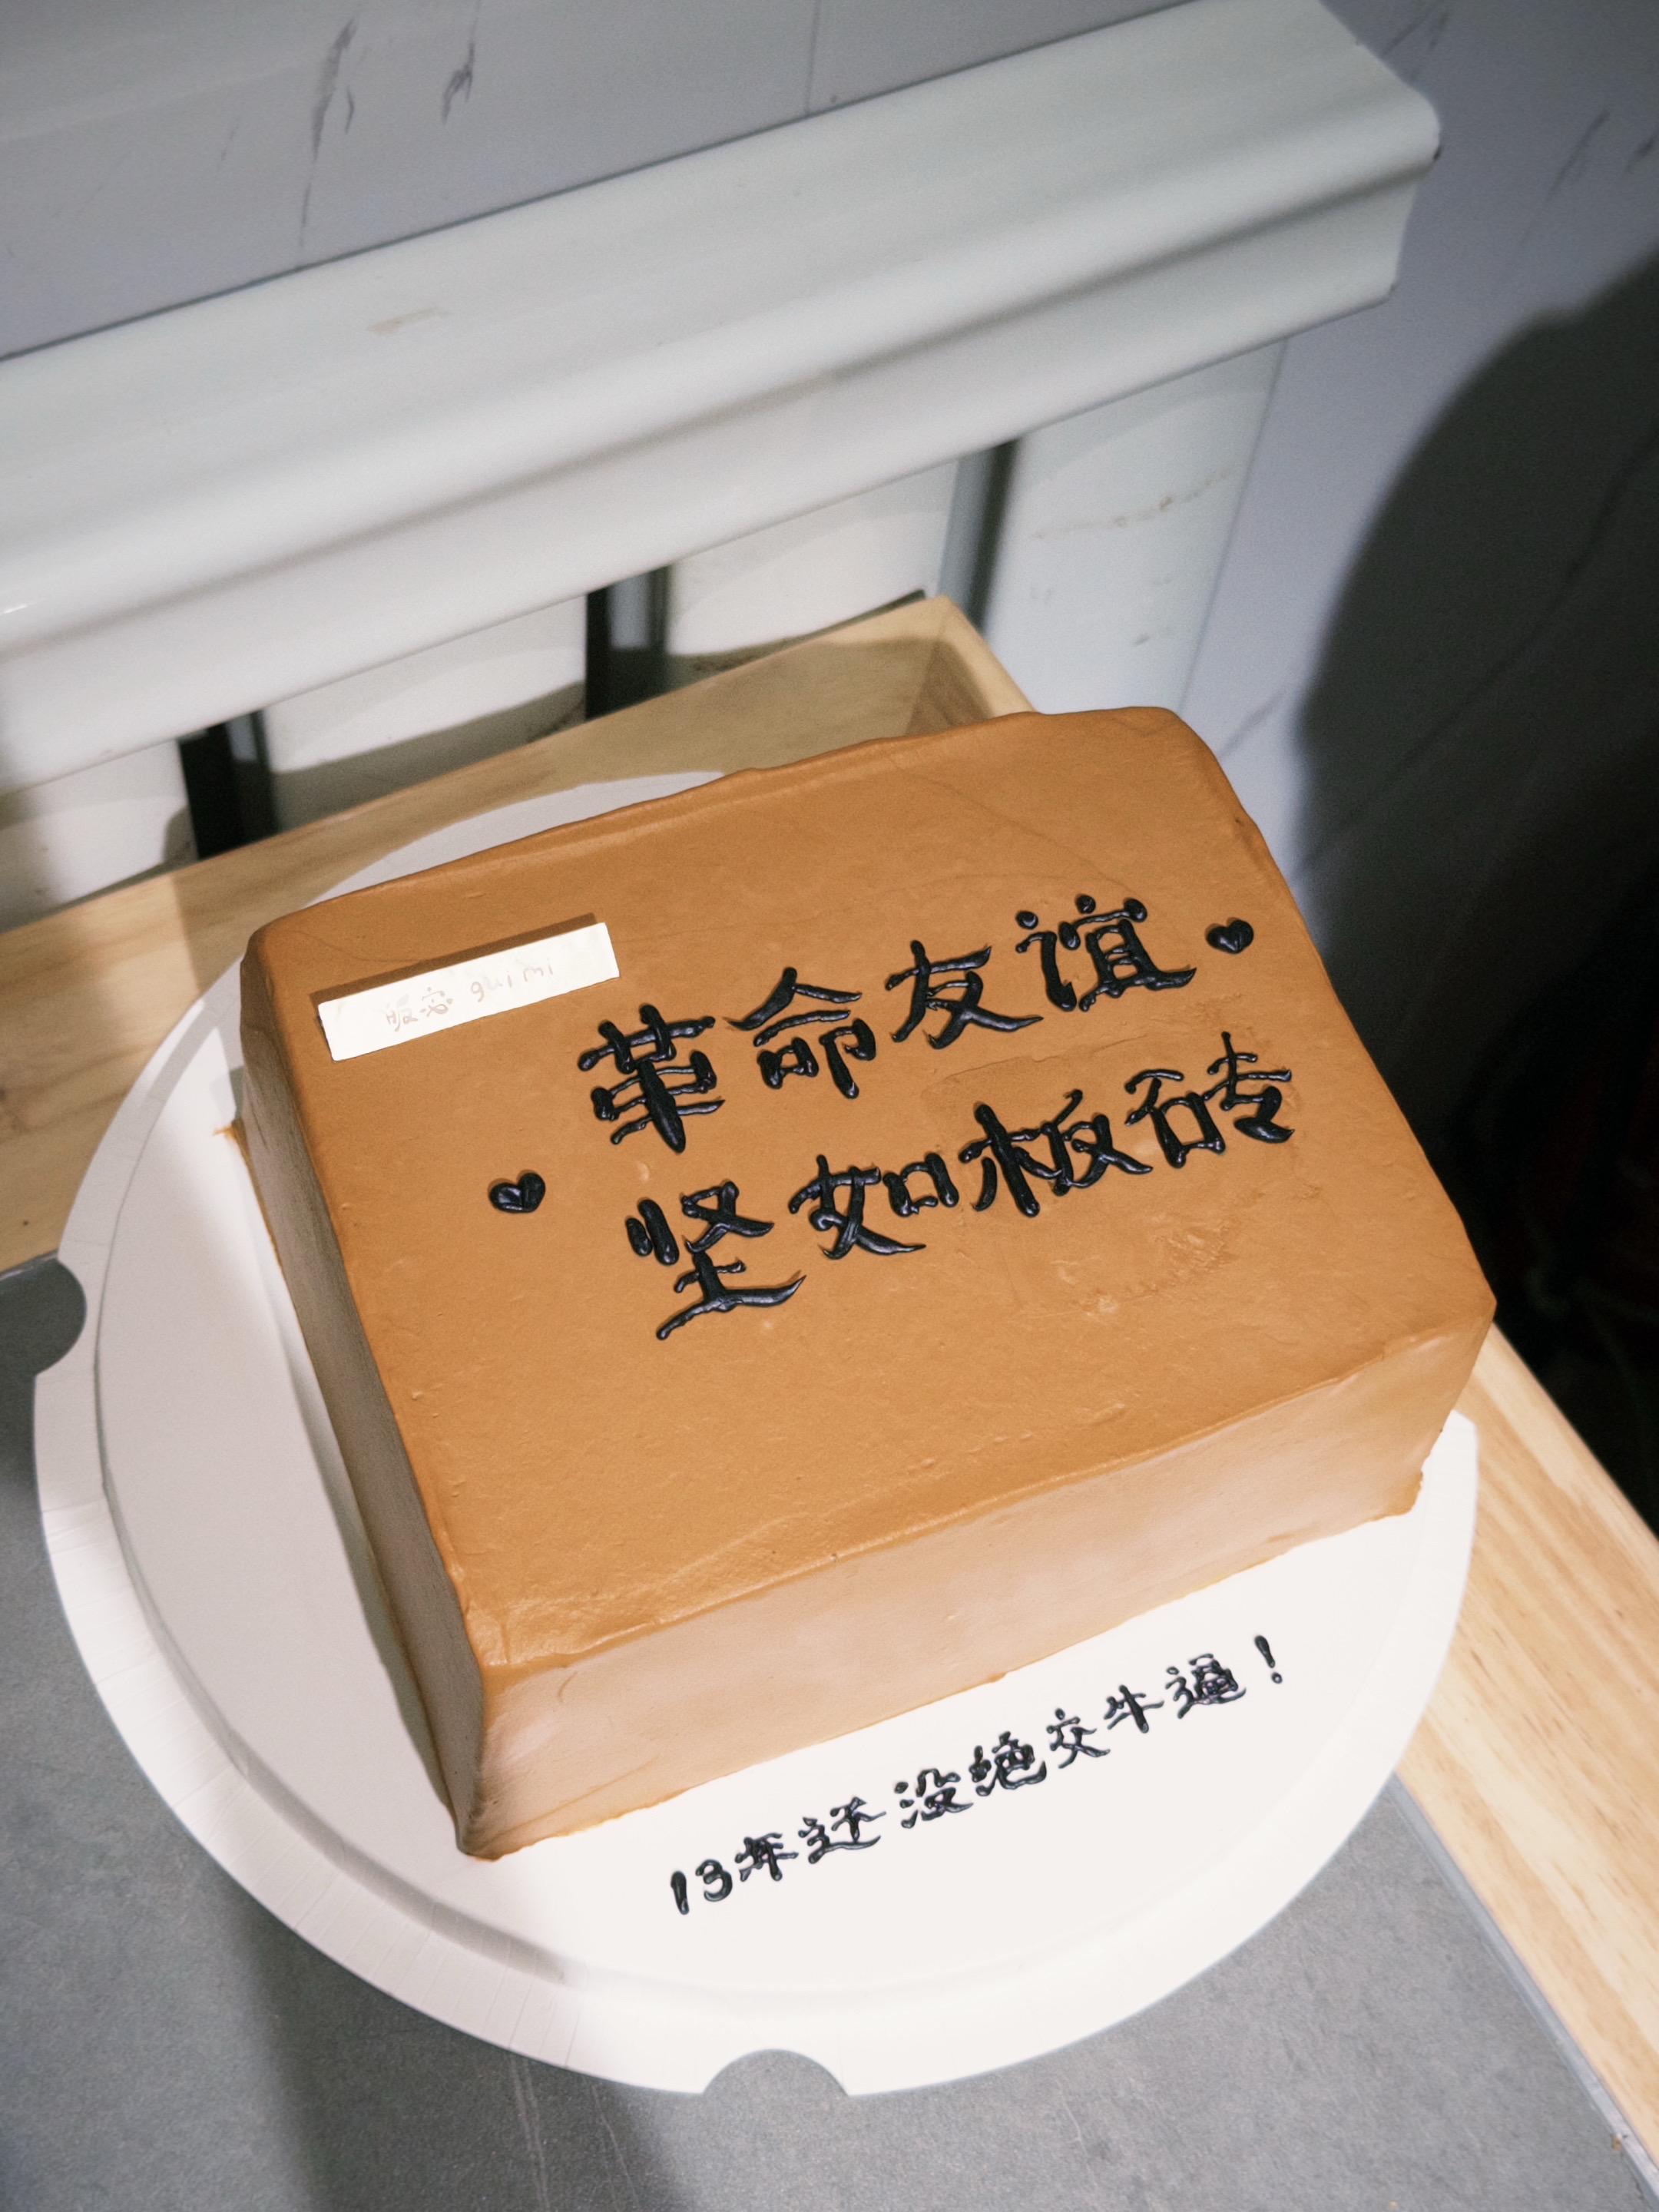 guimi
革命友谊
坚如板砖
13年还没绝交牛逼！